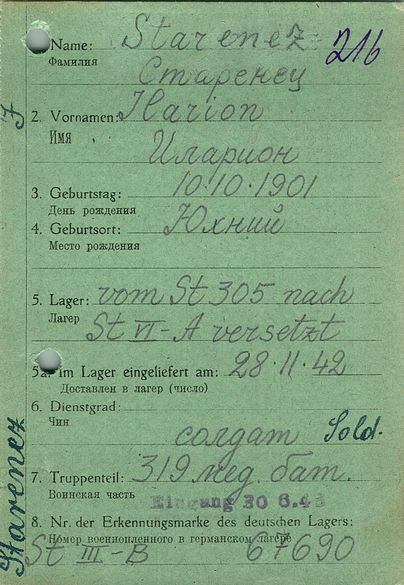 1. Name: Starenez 216
Фамилия Старенец
2. Vornamen: Ilarion
Имя Иларион
3. Geburtstag: 10.10.1901
День рождения
4. Geburtsort: Юхний
Место рождения
5. Lager: vom St 305 nach
Лагер St VI-A versetzt
5a. im Lager eingeliefert am: 28.11.42
Доставлен в лагер (число)
6. Dienstgrad:
Чин солдат Sold.
7. Truppenteil: 319 мед. бат.
Воинская часть Eingang 30 6.43
8. Nr. der Erkennungsmarke des deutschen Lagers:
Номер военнопленного в германском лагере
St III-B 67690
J
Starenez